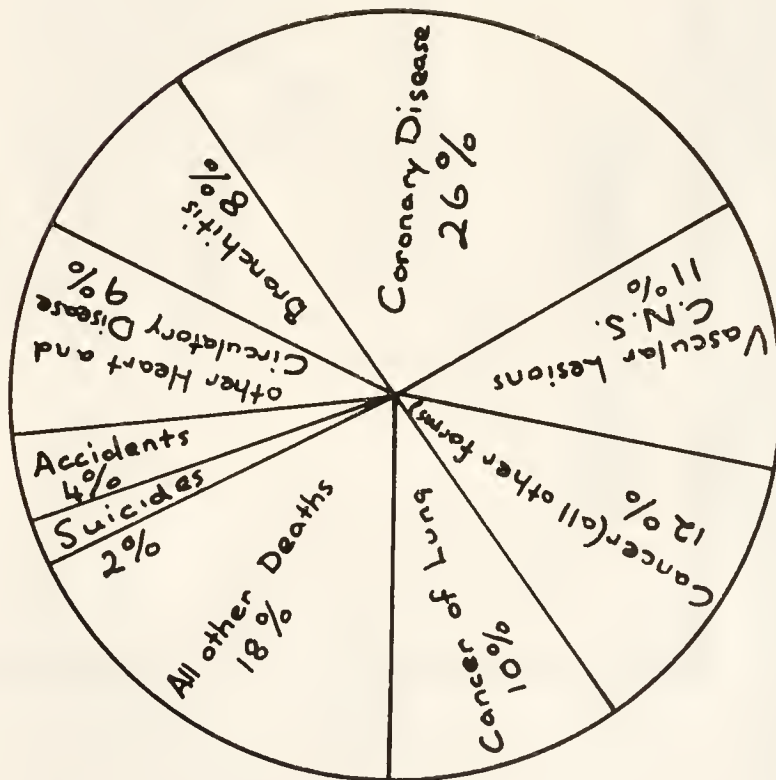 Coronary Disease
26%
Vascular Lesions
C.N.S.
11%
Cancer (all other forms)
12%
Cancer of Lung
10%
All other Deaths
18%
Suicides
2%
Accidents
4%
other Heart and
Circulatory Disease
9%
Bronchitis
8%